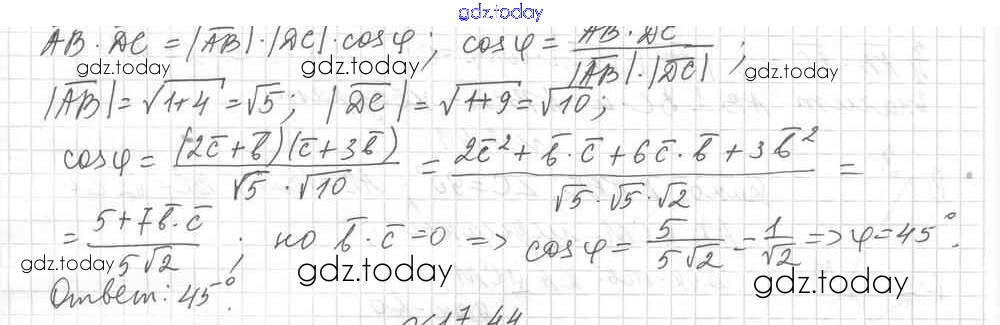 gdz.today
AB · DC = |AB|·|DC|·cosφ; cosφ = AB·DC / |AB|·|DC| ;
gdz.today gdz.today gdz.today
|AB| = √1+4 = √5; |DC| = √1+9 = √10;
cosφ = (2c+b)(c+3b) / √5·√10 = 2c²+b·c+6c·b+3b² / √5·√5·√2 =
= 5+7b·c / 5√2 ; но b·c=0 => cosφ = 5 / 5√2 = 1 / √2 => φ=45°.
gdz.today gdz.today gdz.today
Ответ: 45°.
17.44